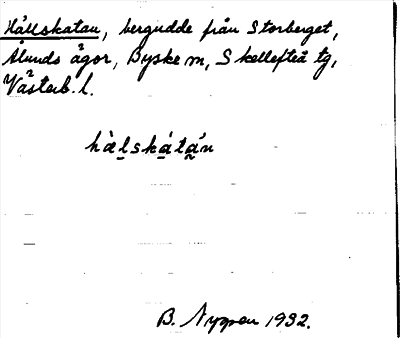 Hällskatan, bergudde från Storberget,
Ålunds ägor, Byske sn, Skellefteå tg,
Västerb. l.
hàlskátán
B. Nygren 1932.